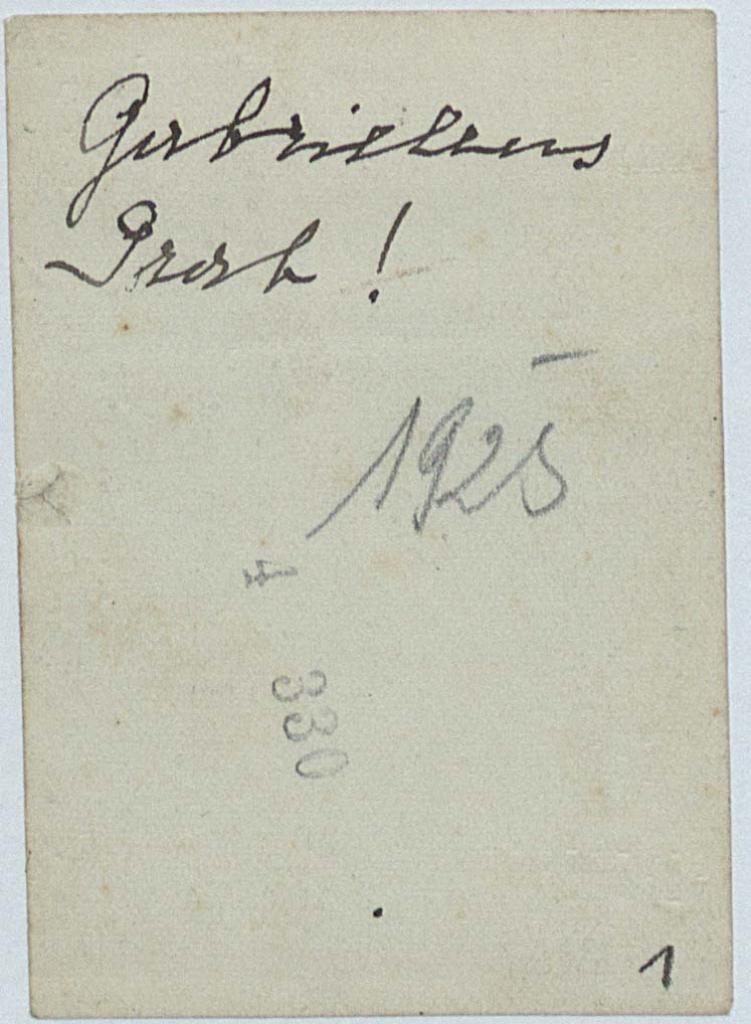 Gabrielens
Grab!
1925
4
330
1